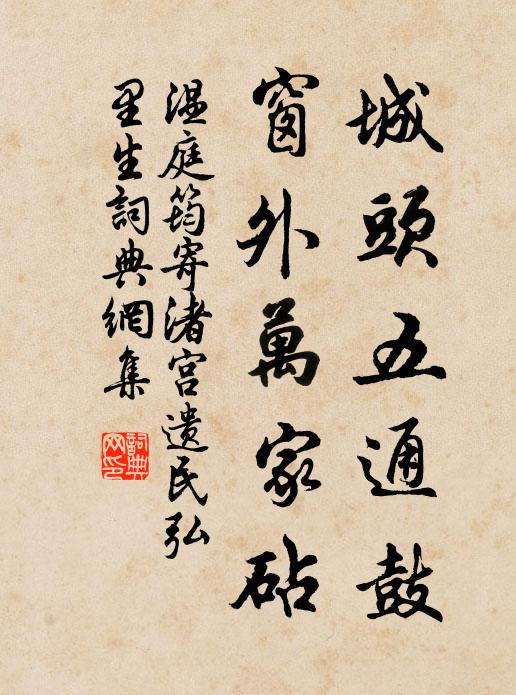 城頭五通鼓
窗外萬家砧
温庭筠寄渚宫遗民弘
里生詞典網集
詞典網印